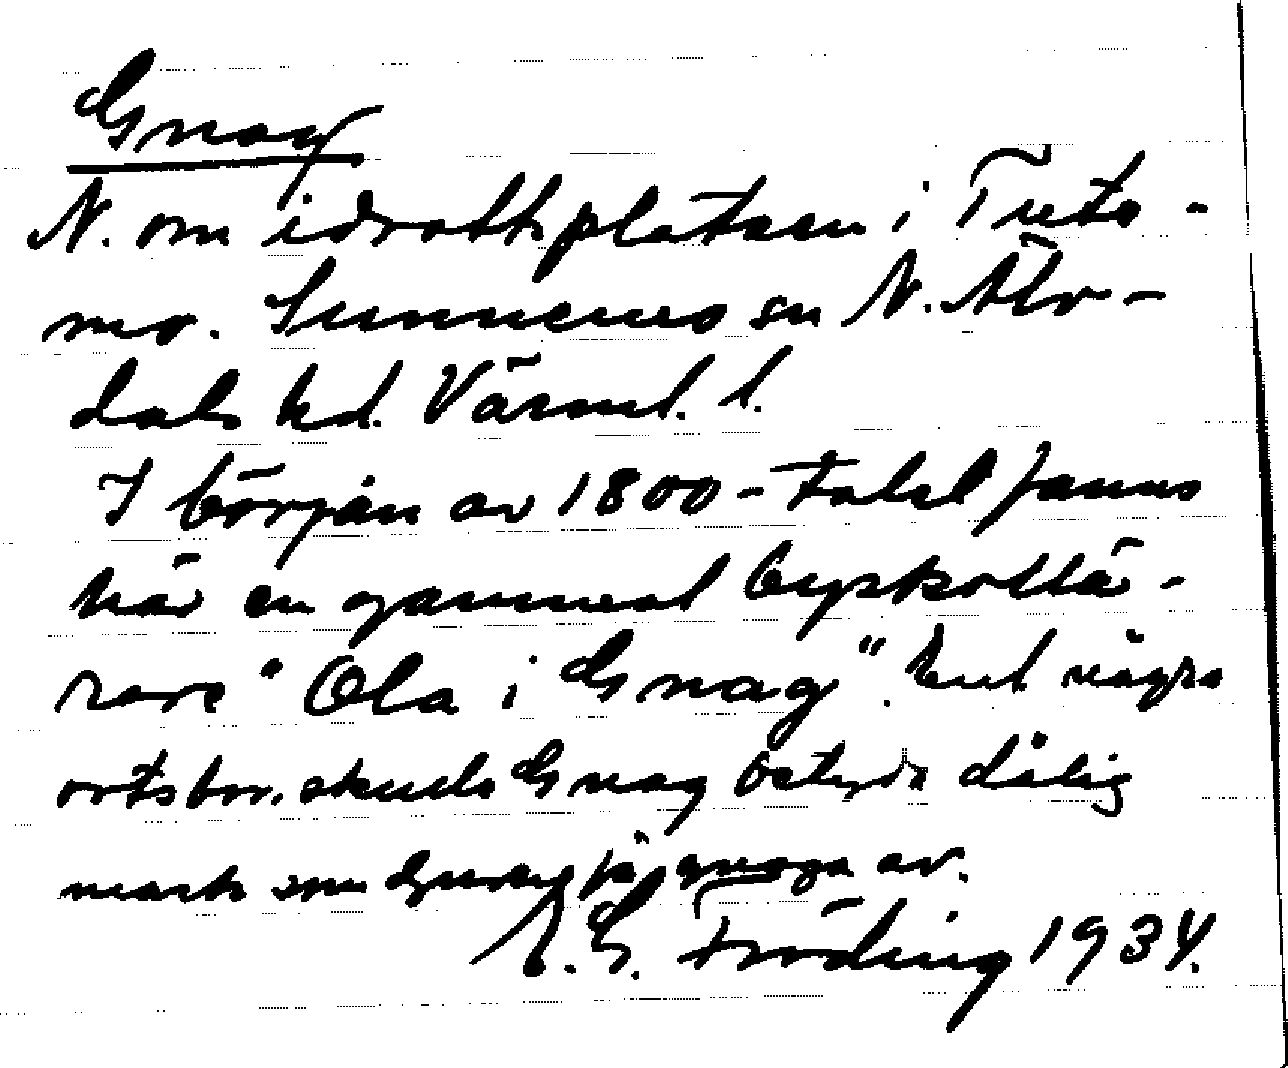 Gnag
N. om idrottsplatsen i Tuto-
mo. Sunnemo sn N. Älv-
dals hd. Värml. l.
I början av 1800-talet fanns
här en gammal byskollä-
rare "Ola i Gnag". Enl några
ortsbor. skulle Gnag betyda dålig
mark som djuren få gnaga av.
E. G. Fröding 1934.